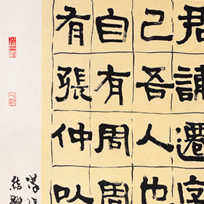 君誦遷字
己吾人也
自有周周
有張仲以